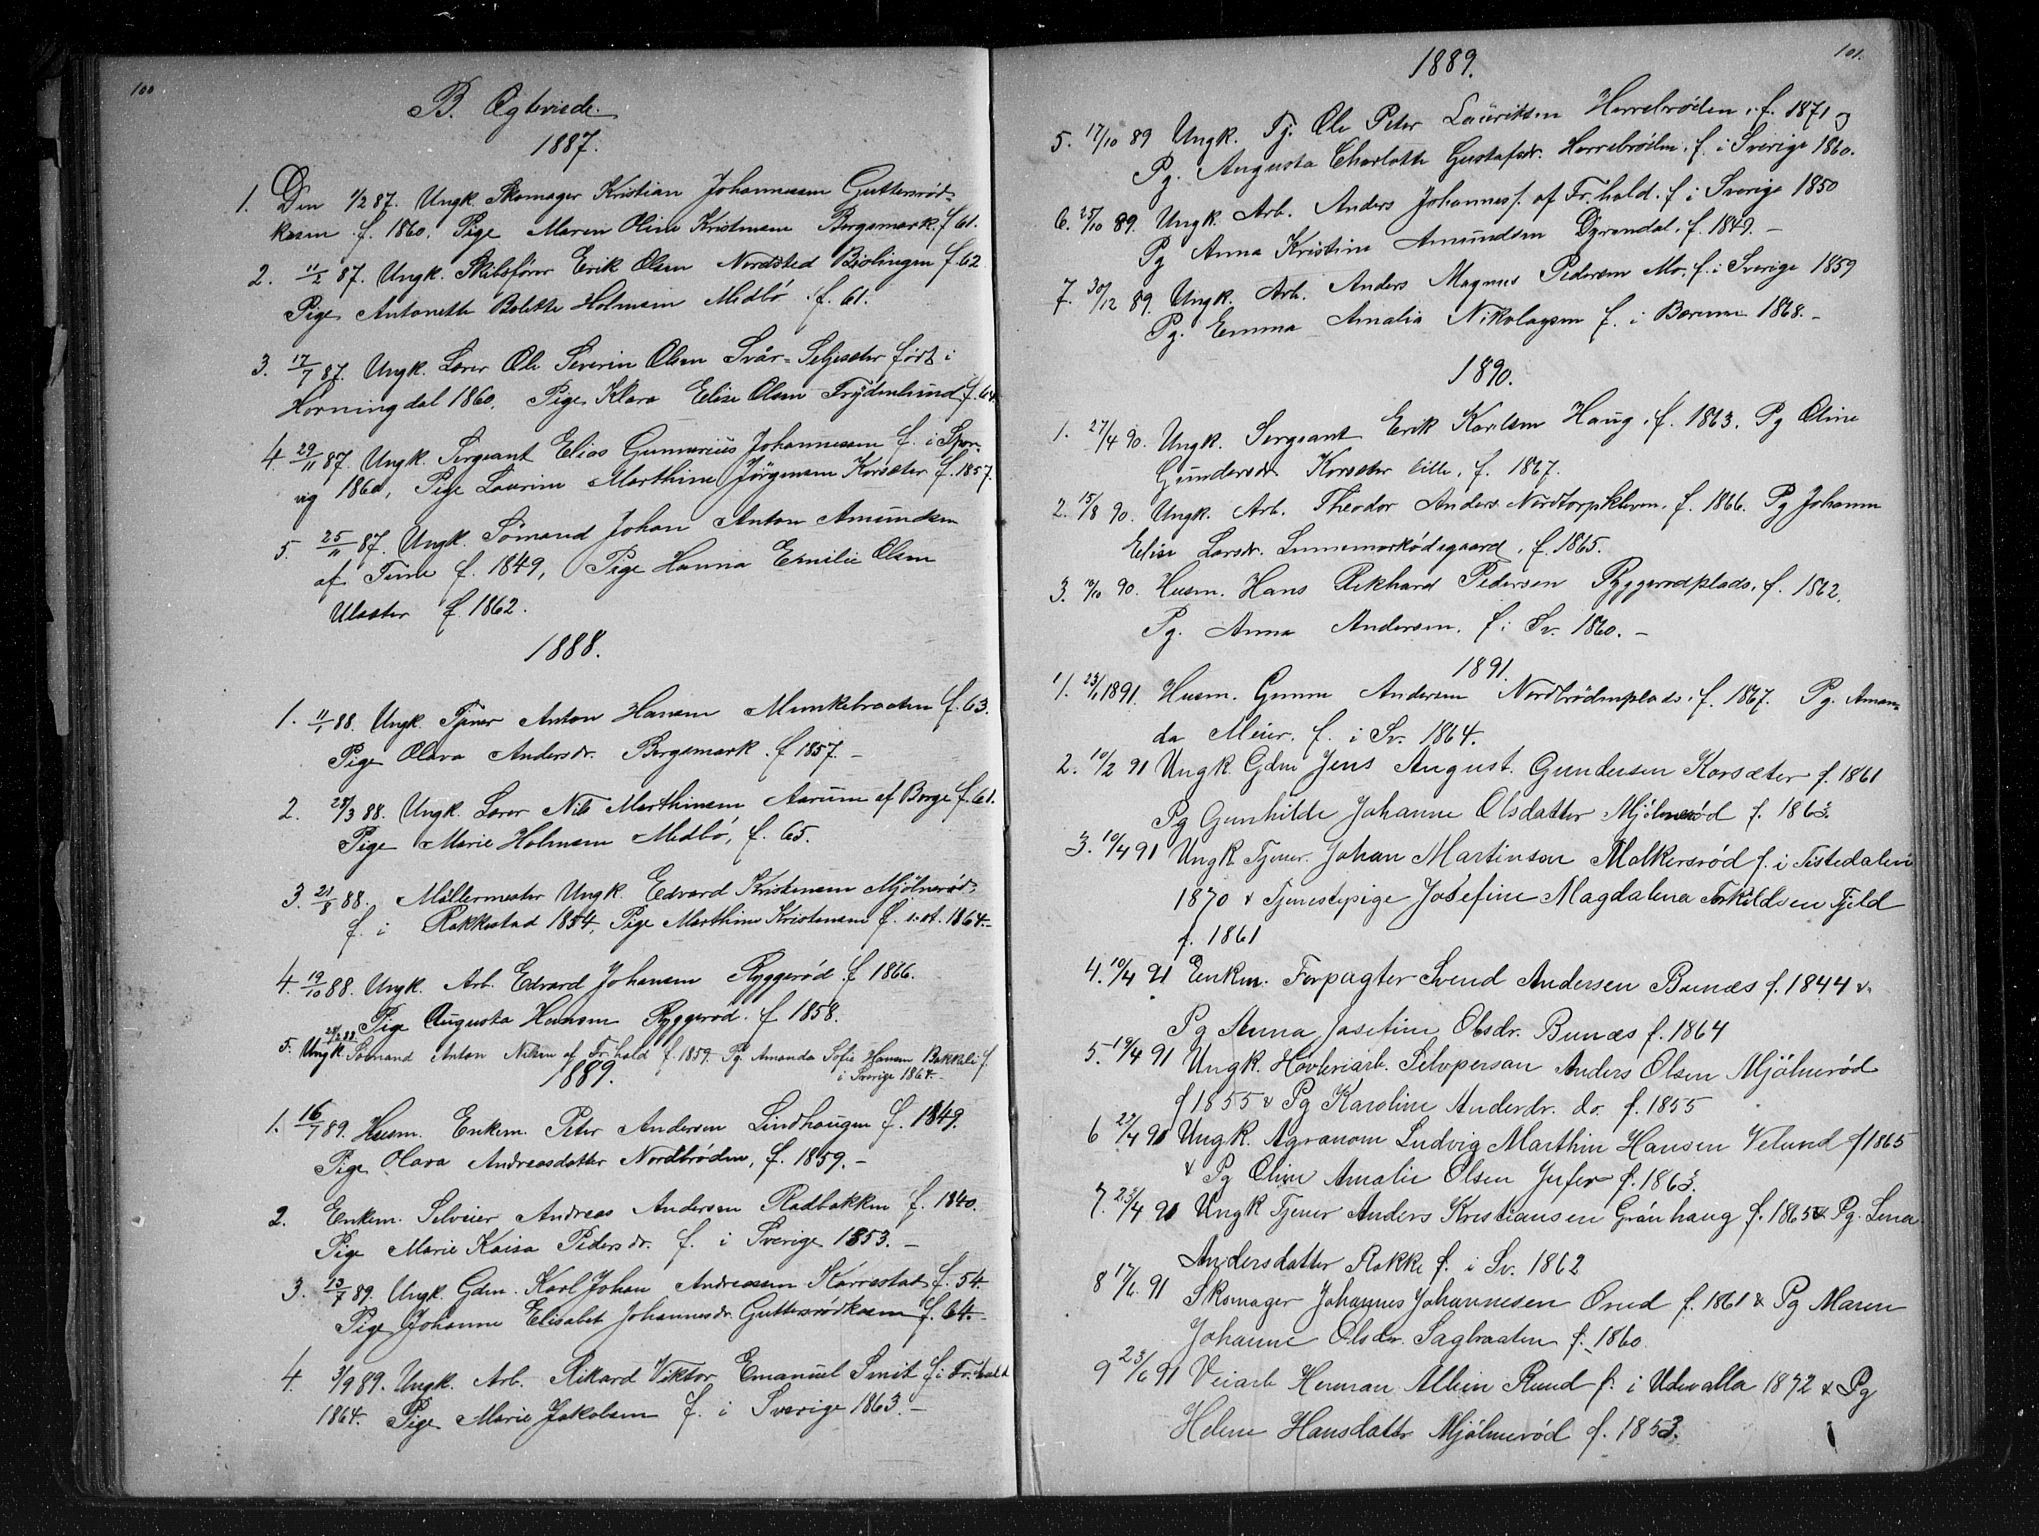 100
B. Ægteviede.
1887.
1. Den 1/2 87. Ungk. Skomager Kristian Johannesen Guttersrød-
kasen f. 1860. Pige Maren Oline Kristensen Bergsmark f. 61.
2. 11/2 87. Ungk. Skibsfører Erik Olsen Nordsted Bjølingen f. 62
Pige Antonette Bolette Holmsen Medbö f. 61.
3. 17/7 87. Ungk. Lærer Ole Severin Olsen Svår-Seljesæter født i
Horningdal 1860. Pige Klara Elise Olsen Frydenlund f. 64
4. 29/11 87. Ungk. Sergeant Elias Gunnerius Johannesen f. i Spær-
vig 1860, Pige Laurine Marthine Jörgensen Korsæter f. 1857.
5. 25/11 87. Ungk. Sömand Johan Anton Amundsen
af Tune f. 1849, Pige Hanna Emilie Olsen
Ulsæter f. 1862.
1888.
1. 11/1 88. Ungk. Tjener Anton Hansen Munkebraaten f. 63.
Pige Olava Andersdr. Bergsmark f. 1857. –
2. 28/3 88. Ungk. Lærer Nils Marthinsen Aarum af Borge f. 61.
Pige Marie Holmsen Medbö, f. 65.
3. 21/8 88. Möllermester Ungk. Edvard Kristensen Mjölnerød
f. i Rakkestad 1854, Pige Marthine Kristensen f. i st. 1864. –
4. 19/10 88. Ungk. Arb. Edvard Johansen Ryggerød f. 1866.
Pige Augusta Hansen Ryggerød. f. 1858.
5. 28/12 88 Ungk. Sömand Anton Nilsen af Fr.hald f. 1859. Pg. Amanda Sofie Hansen Bakkeli f.
i Sverige 1864. –
1889.
1. 16/1 89. Husm. Enkem. Peter Andersen Lindhaugen f. 1849.
Pige Olava Andreasdatter Nordbrøden, f. 1859. –
2. Enkem. Selveier Andreas Andersen Rødbakken f. 1840.
Pige Marie Kaisa Pedersdr. f. i Sverige 1853. –
3. 13/7 89. Ungk. Gdm. Karl Johan Andreassen Karrestad f. 54.
Pige Johanne Elisabet Johannesdr. Guttersrødkasen f. 64. –
4. 3/9 89. Ungk. Arb. Rikard Viktor Emanuel Smit f. i Fr.hald
1864. Pige Marie Jakobsen f. i Sverige 1863. –
101.
1889.
5. 17/10 89 Ungk. Tj. Ole Peter Lauritsen Herrebrøden, f. 1871 og
Pg. Augusta Charlotte Gustafsdr. Herrebrøden, f. i Sverige 1860.
6. 25/10 89. Ungk. Arb. Anders Johannes s. af Fr.hald. f. i Sverige 1850
Pg Anna Kristine Amundsen Dyrendal, f. 1849. –
7. 30/12 89. Ungk. Arb. Anders Magnus Pedersen Mo, f. i Sverige 1859
Pg. Emma Amalia Nikolaysen f. i Bærum 1868. –
1890.
1. 27/4 90. Ungk. Sergeant Erik Karlsen Haug, f. 1863. Pg Oline
Gundersdr. Korsæter lille, f. 1867.
2. 15/8 90. Ungk. Arb. Theodor Anders Nordtorpkleven, f. 1866. Pg Johanne
Elise Larsdr. Lunnemarkødegaard, f. 1865.
3. 19/10 90. Husm. Hans Rikhard Pedersen Ryggerødplads, f. 1862,
Pg. Anna Andersen. f. i Sv. 1860. –
1891.
1. 23/1 1891. Husm. Gunne Andersen Nordbrødenplads, f. 1867. Pg. Aman-
da Meier. f. i Sv. 1864.
2. 10/2 91 Ungk. Gdm Jens August Gundersen Korsæter f. 1861
Pg Gunhilde Johanne Olsdatter Mjölnerød f. 1863.
3. 10/4 91 Ungk Tjener Johan Martinsen Malkersrød f. i Tistedalen
1870 & Tjenestepige Josefine Magdalena Torkildsen Fjeld
f. 1861
4. 10/4 91 Enkm. Forpagter Svend Andersen Bunæs f. 1844 &
Pg Anna Josefine Olsdr. Bunæs f. 1864
5. 19/4 91 Ungk. Høvleriarb. Selvpersan Anders Olsen Mjölnerød
f 1855 & Pg Karoline Andersdr. do. f. 1855
6 22/4 91 Ungk. Agronom Ludvig Marthin Hansen Velund f 1865
& Pg Oline Amalie Olsen Jufer f. 1863.
7. 23/4 91 Ungk Tjener Anders Kristiansen Grönhaug f. 1865 & Pg. Lena
Andersdatter Rokke f. i Sv. 1862
8 17/6 91 Skomager Johannes Johannesen Ønd f. 1861 & Pg Maren
Johanne Olsdr. Sagbraaten f. 1860
9 23/6 91 Veiarb Herman Albin Rund f. i Udevalla 1872 & Pg
Helene Hansdatter Mjölnerød f. 1853.